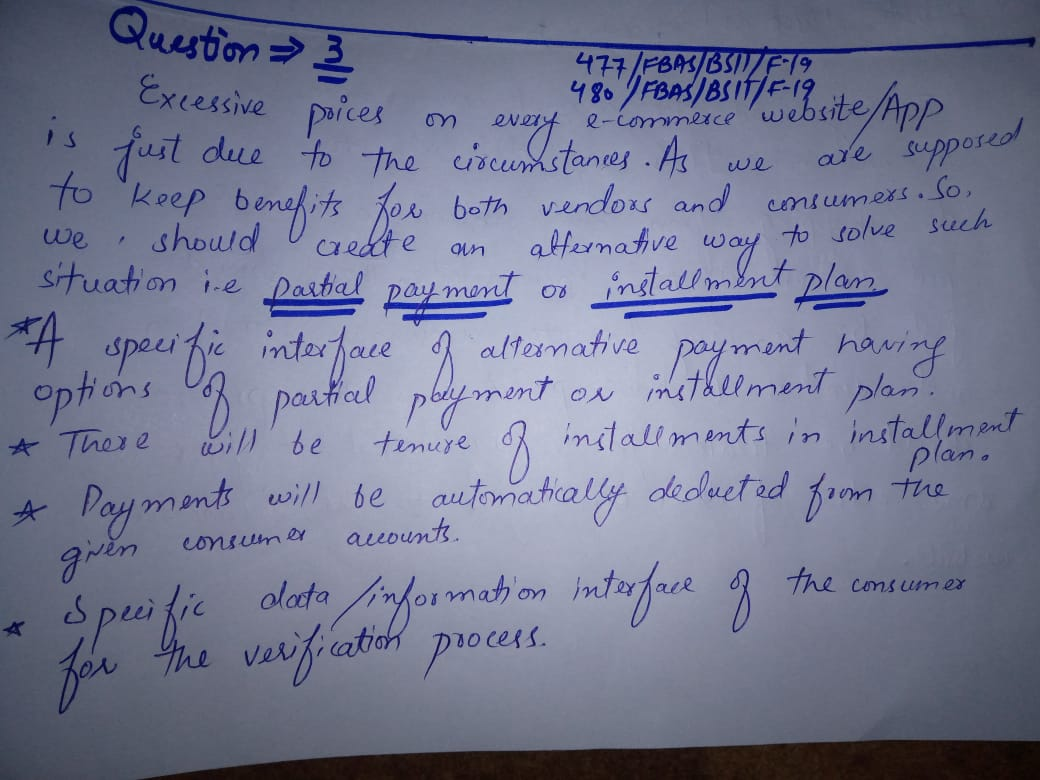 Question ⇒ 3
477/FBAS/BSIT/F-19
480/FBAS/BSIT/F-19
Excessive prices on every e-commerce website/App
is just due to the circumstances. As we are supposed
to keep benefits for both vendors and consumers. So,
we should create an alternative way to solve such
situation i.e partial payment or installment plan
* A specific interface of alternative payment having
options of partial payment or installment plan.
* There will be tenure of installments in installment
plan.
* Payments will be automatically deducted from the
given consumer accounts.
* Specific data/information interface of the consumer
for the verification process.